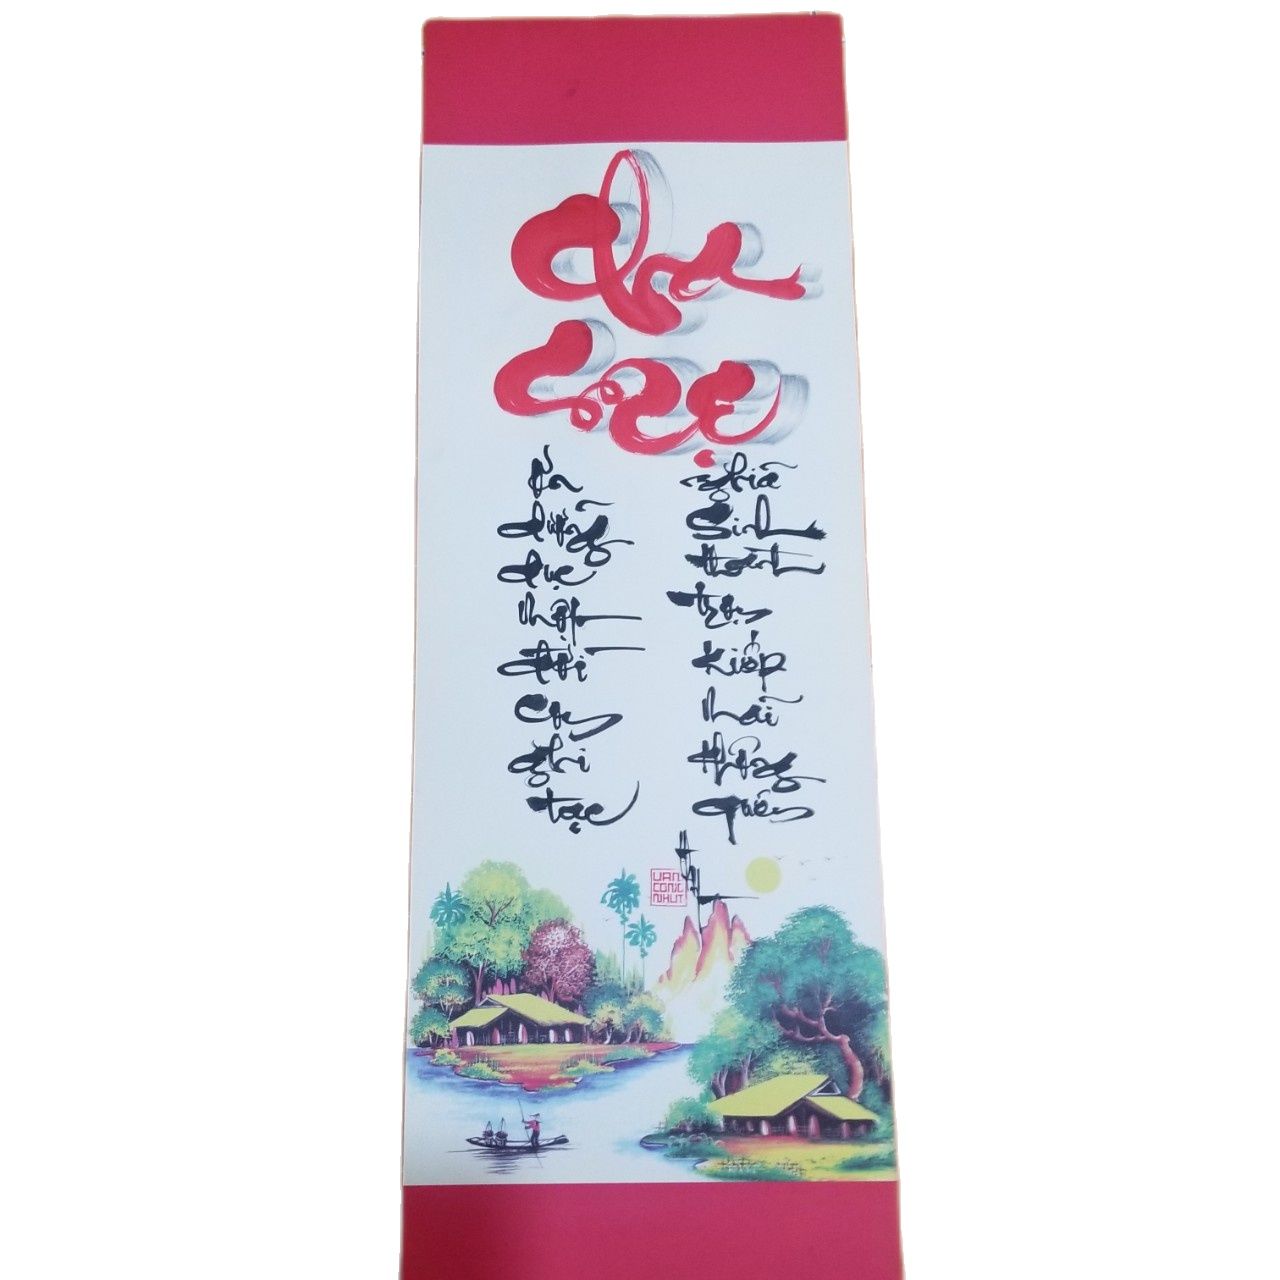 Cha
Mẹ
Ơn
dưỡng
dục
một
đời
con
ghi
tạc
Nghĩa
Sinh
thành
trọn
kiếp
mãi
không
quên
VAN
CONG
NHUT